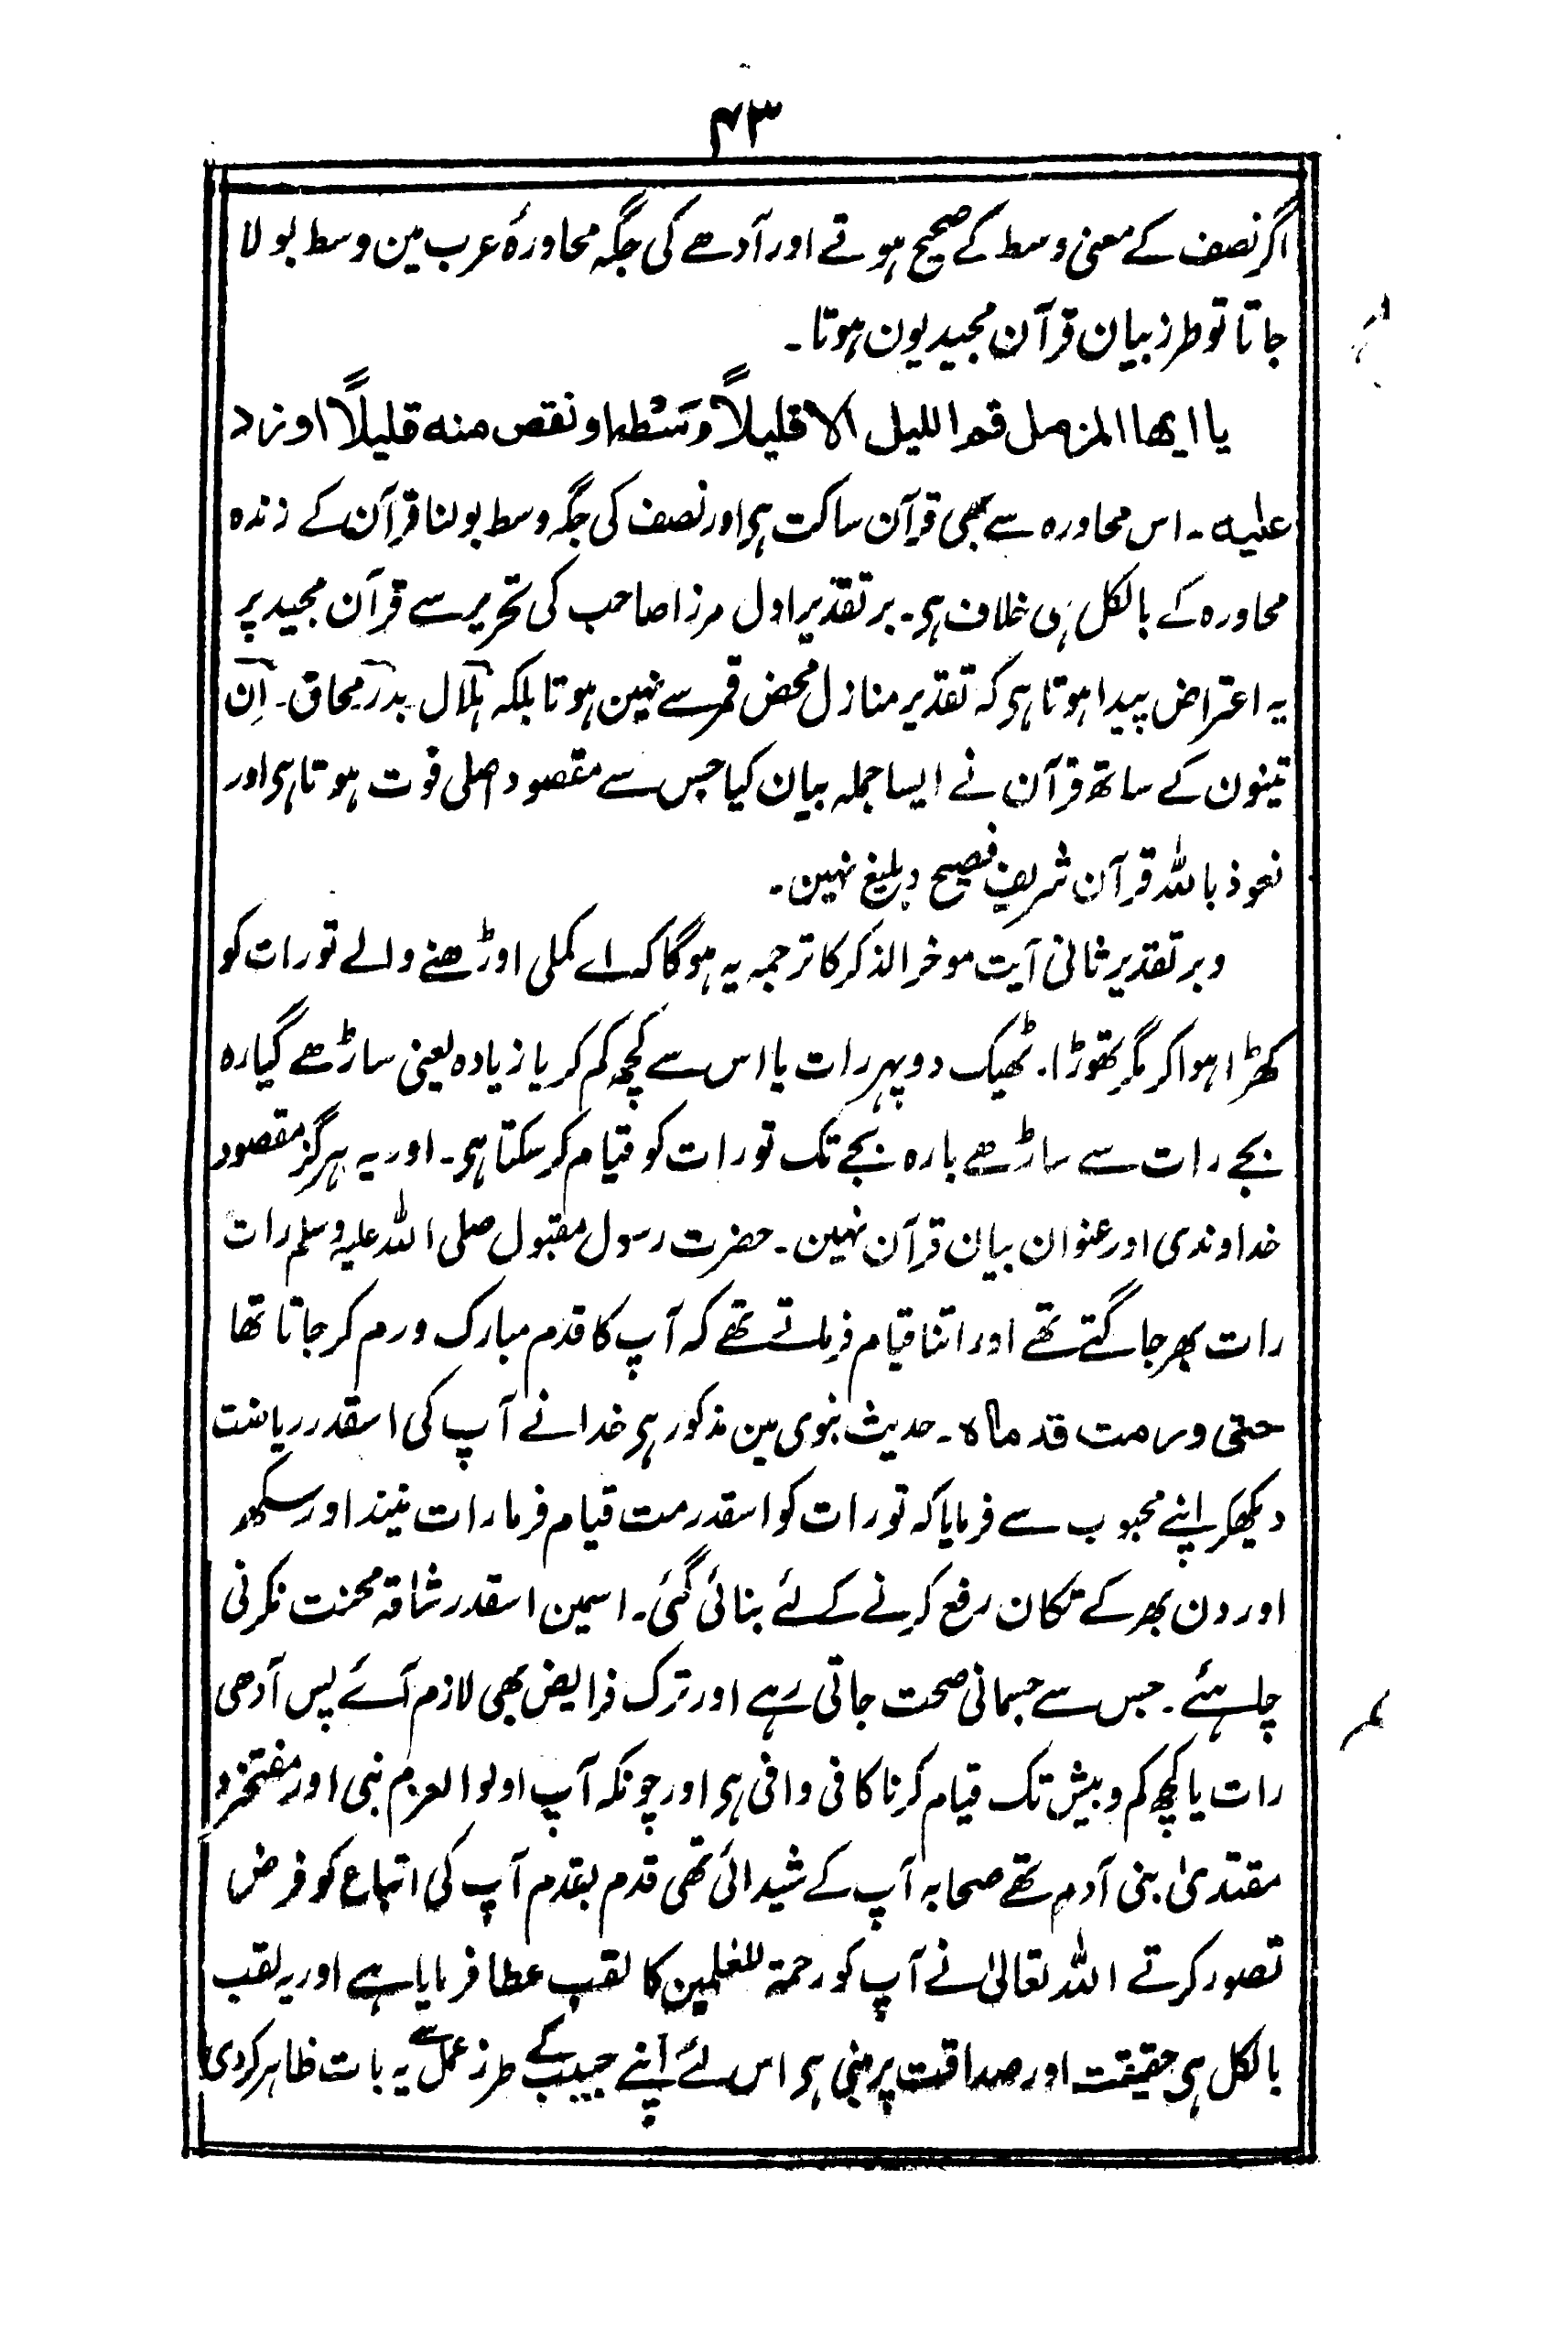 ۴۳
اگر نصف کے معنی وسط کے صحیح ہوتے اور آدھے کی جگہ محاورۂ عرب مین وسط بولا
جاتا تو طرز بیان قرآن مجید یون ہوتا۔
یا ایھا المزمل قم اللیل الا قلیلاً وَسْطہ او نقص منہ قلیلاً او زد
علیہ۔ اس محاورہ سے بھی قرآن ساکت ہی اور نصف کی جگہ وسط بولنا قرآن کے زندہ
محاورہ کے بالکل ہی خلاف ہی۔ بر تقدیر اول مرزا صاحب کی تحریر سے قرآن مجید پر
یہ اعتراض پیدا ہوتا ہی کہ تقدیر منازل محض قمر سے نہین ہوتا بلکہ ہلال بدر محاق۔ اِن
تینون کے ساتھ قرآن نے ایسا جملہ بیان کیا جس سے مقصود اصلی فوت ہوتا ہی اور
نعوذ باللہ قرآن شریف فصیح و بلیغ نہین۔
و بر تقدیر ثانی آیت موخر الذکر کا ترجمہ یہ ہوگا کہ اے کملی اوڑھنے والے تو رات کو
کھڑا ہوا کر مگر تھوڑا۔ ٹھیک دوپہر رات یا اس سے کچھ کم کر یا زیادہ یعنی ساڑھے گیارہ
بجے رات سے ساڑھے بارہ بجے تک تو رات کو قیام کر سکتا ہی۔ اور یہ ہرگز مقصود
خداوندی اور عنوان بیان قرآن نہین۔ حضرت رسول مقبول صلی اللہ علیہ وسلم رات
رات بھر جاگتے تھے اور اتنا قیام فرماتے تھے کہ آپ کا قدم مبارک ورم کر جاتا تھا
حتی ورمت قدماہ۔ حدیث نبوی مین مذکور ہی خدا نے آپ کی اسقدر ریاضت
دیکھکر اپنے محبوب سے فرمایا کہ تو رات کو اسقدر مت قیام فرما رات نیند اور سکھ
اور دن بھر کے تکان رفع کرنے کے لئے بنائی گئی۔ اسمین اسقدر شاقہ محنت نکرنی
چاہئے۔ جس سے جسمانی صحت جاتی رہے اور ترک فرایض بھی لازم آئے پس آدھی
رات یا کچھ کم و بیش تک قیام کرنا کافی وافی ہی اور چونکہ آپ اولو العزم نبی اور مفتخر و
مقتدیٰ بنی آدم تھے صحابہ آپ کے شیدائی تھی قدم بقدم آپ کی اتباع کو فرض
تصور کرتے اللہ تعالیٰ نے آپ کو رحمۃ للعٰلمین کا لقب عطا فرمایا ہے اور یہ لقب
بالکل ہی حقیقت اور صداقت پر مبنی ہی اس لئے اپنے حبیب کے طرز عمل سے یہ بات ظاہر کر دی